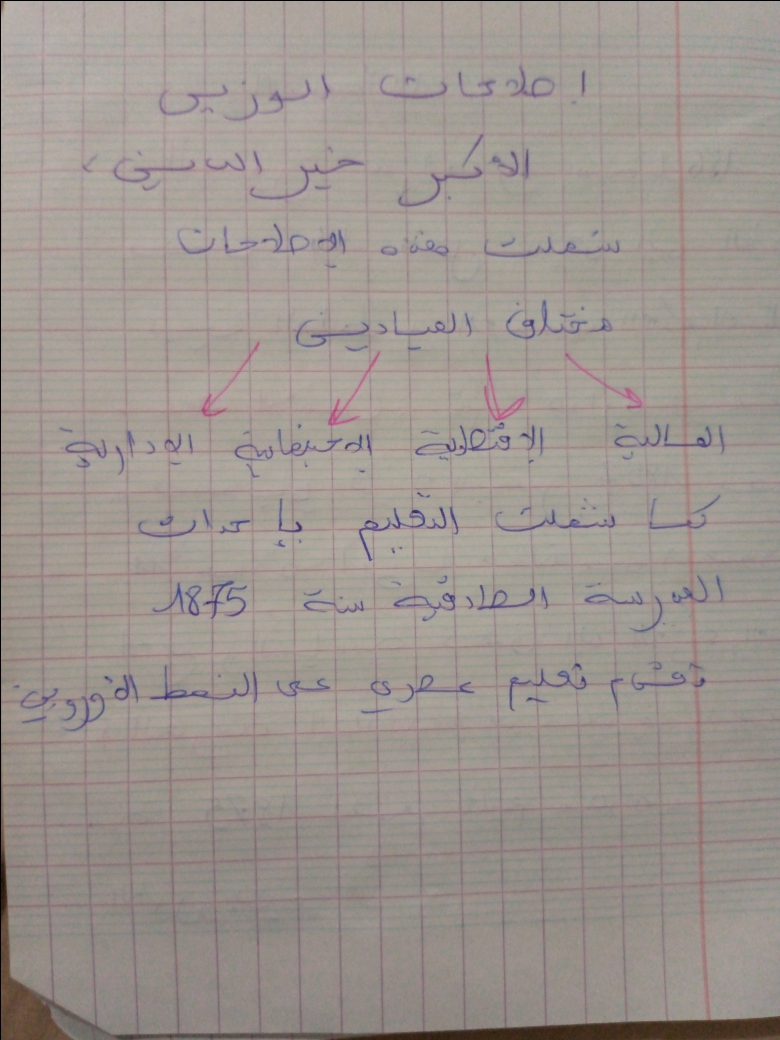 إصلاحات الوزير
الأكبر خير الدين،
شملت هذه الإصلاحات
مختلف الميادين
المالية الإقتصادية الاجتماعية الإدارية
كما شملت التعليم بإحداث
المدرسة الصادقية سنة 1875
تعليم عصري على النمط الأوروبي